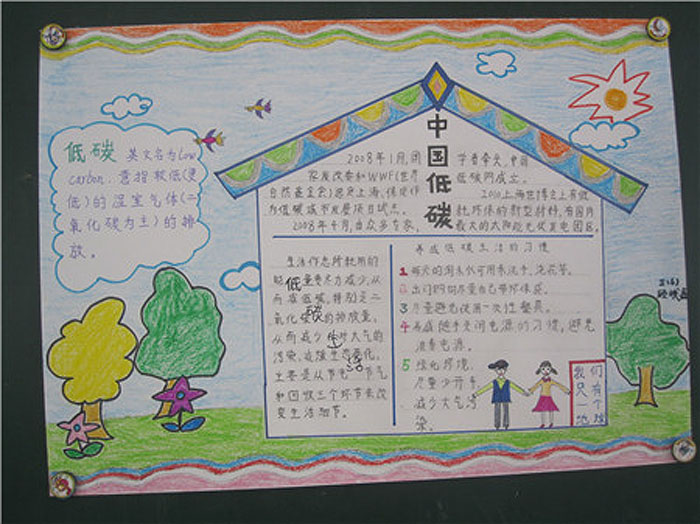 低碳 英文名为low
carbon. 意指较低(更
低)的温室气体(二
氧化碳为主)的排
放。
中国低碳
2008年1月,国
家发改委和WWF(世界
自然基金会)选定上海、保定作
为低碳城市发展项目试点。
2008年4月,由众多专家、
学者牵头,中国
低碳网成立。
2010上海世博会上有低
碳环保的新型材料,有国内
最大的太阳能光伏发电园区。
低碳生活
生活作息所耗用的
能量要尽力减少,从
而减低碳,特别是二
氧化碳的排放量,
从而减少对大气的
污染,减缓生态恶化,
主要是从节电 节气
和回收三个环节来改
变生活细节。
养成低碳生活的习惯
1 每天的淘米水可用来洗手、浇花等。
2 出门购物尽量自己带环保袋。
3 尽量避免使用一次性餐具。
4 养成随手关闭电源的习惯,避免
浪费电源。
5 绿化环境,
尽量少开车,
减少大气污
染。
我们
只有
一个
地球